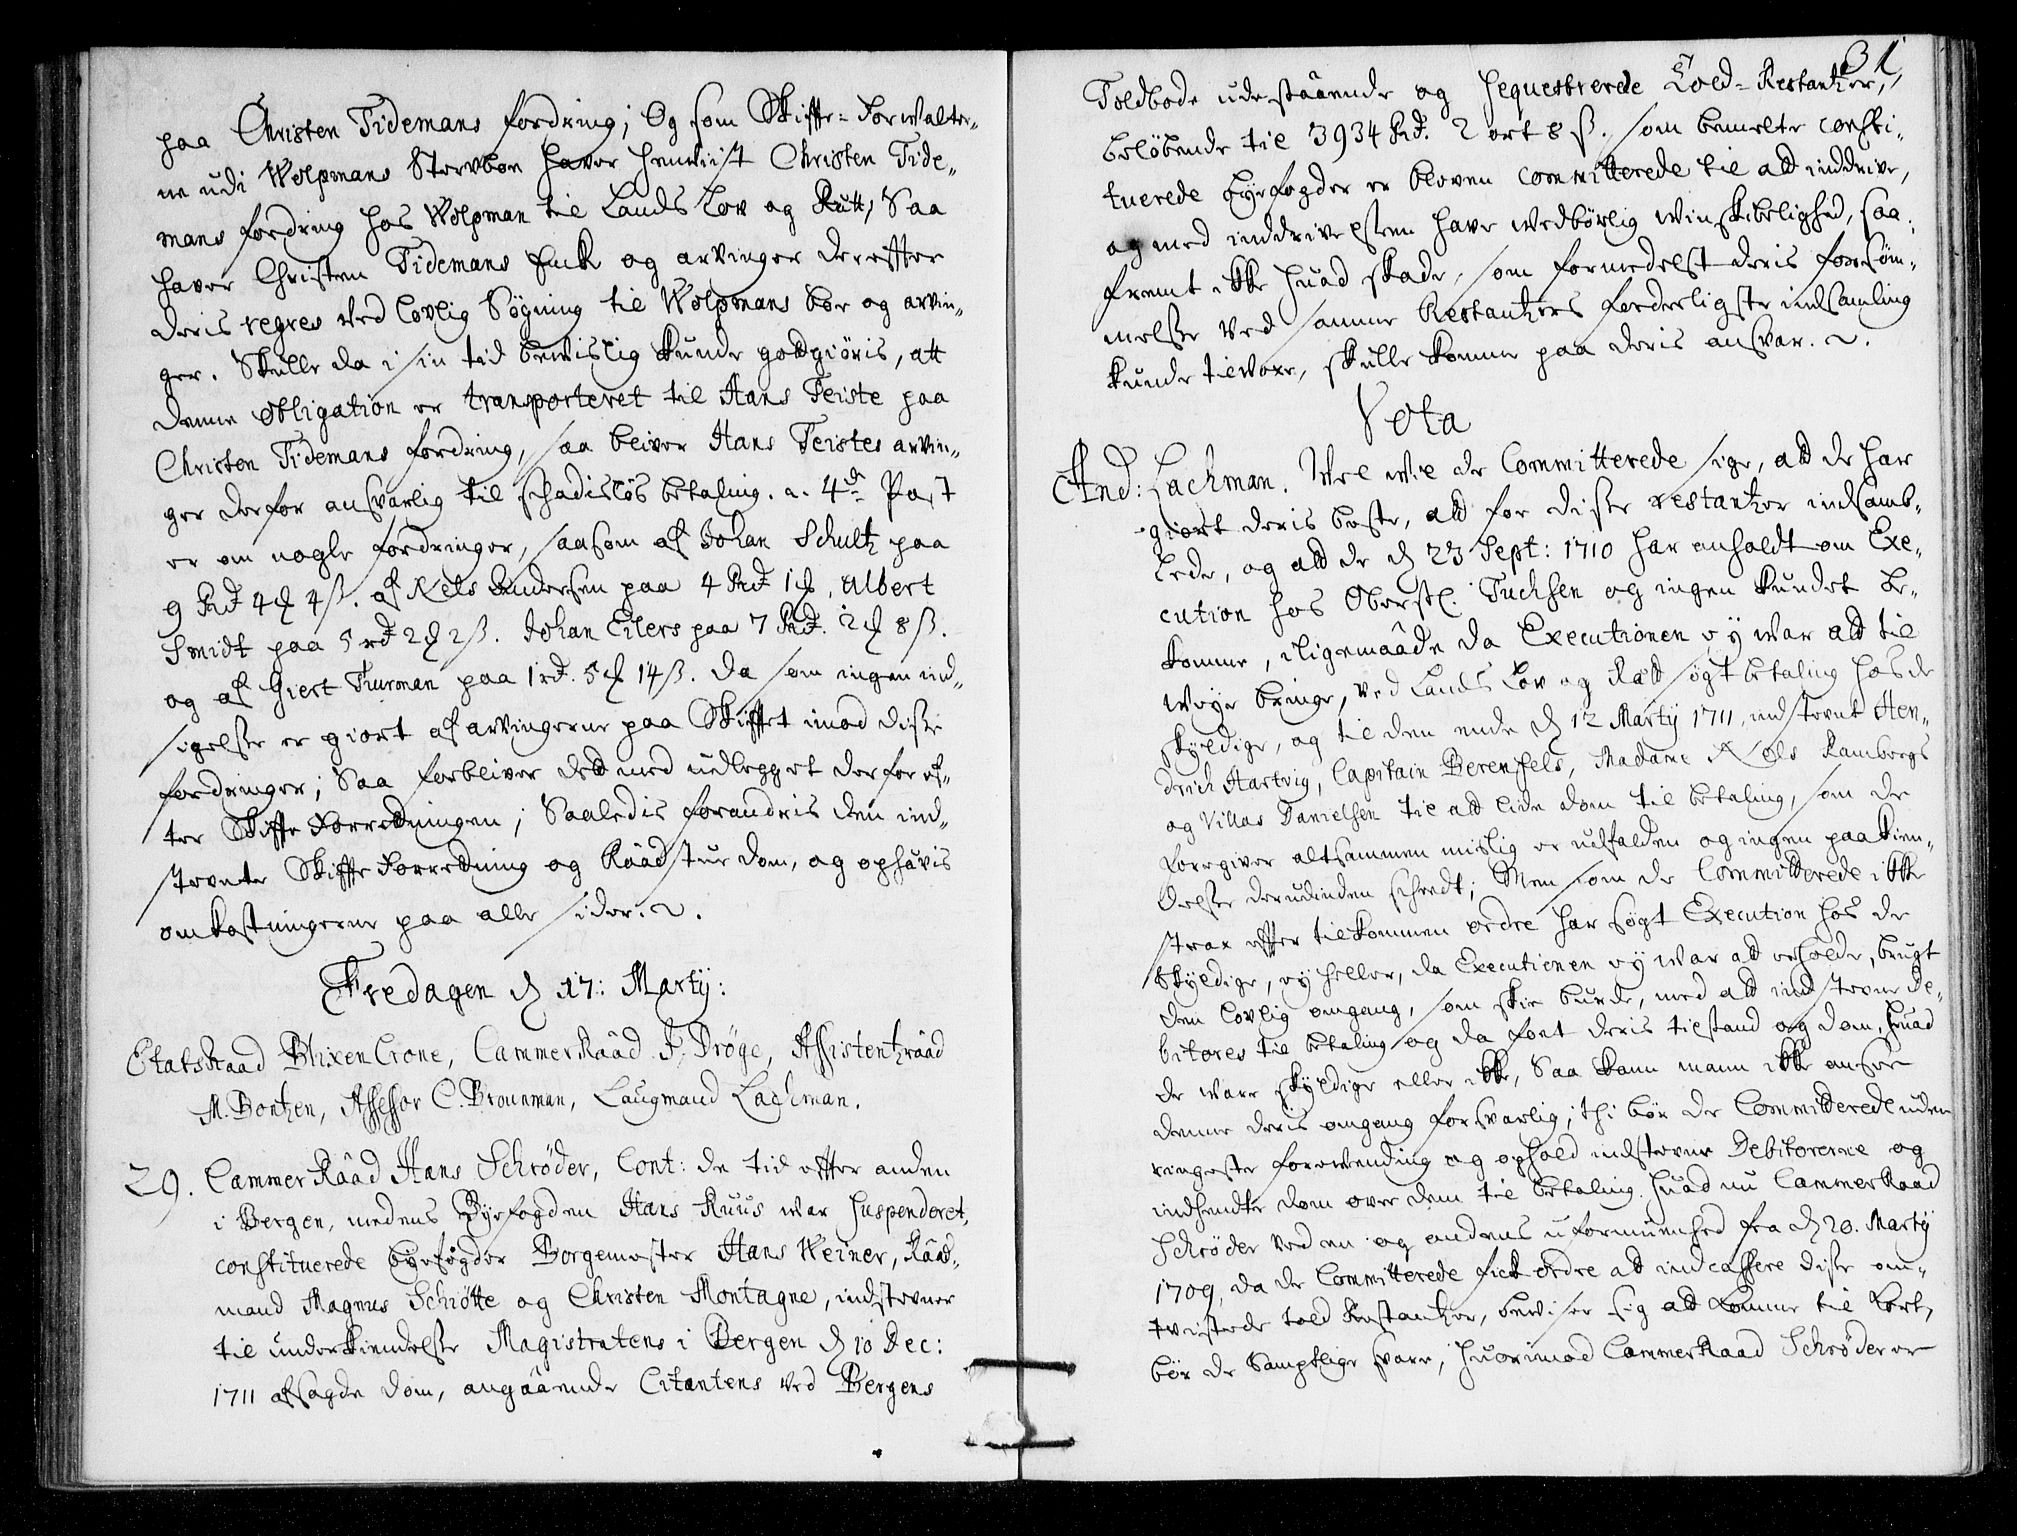 paa Christen Tidemans fordring; Og som Skifte-Forwalter-
ne udi Wolpmans Sterboe haver henviist Christen Tide-
mans fordring hos Wolpman til Lands Lov og Rætt, Saa
haver Christen Tidemans Enke og arvinger derefter
deris regres ved lovlig Søgning til Wolpmans boe og arvin-
ger. Skulle da i sin tid bevislig kunde godtgiøris, att
denne Obligation er transporteret til Hans Teiste paa
Christen Tidemans fordring, saa bliver Hans Teistes arvin-
ger derfor ansvarlig til schadisløs betaling. 4de Post
er om nogle fordringer, saasom af Johan Schultz paa
9 Rd 4 ℳ 4 ß. af Niels Andersen paa 4 Rd 1 ℳ, Albert
Smidt paa 5 rd 2 ℳ 2 ß. Johan Eilers paa 7 Rd. 2 ℳ 8 ß.
og af Giert Tuurman paa 1 rd. 5 ℳ 14 ß. da som ingen ind-
sigelse er giort af arvingerne paa Skiftet imod disse
fordringer; Saa forbliver det med udlegget derfor ef-
ter Skifte Forretningen; Saaledis forandris den ind-
stevnte Skifte Forretning og Raadstue dom, og ophævis
omkostningerne paa alle sider.
Fredagen d 17: Martij:
EtatsRaad Blixencrone, CammerRaad F. Dröge, Assistentzraad
M. Bontzen, Assessor C. Brounman, Laugmand Lachman.
29. CammerRaad Hans Schrøder, Cont: de tid efter anden
i Bergen, medens Byefogden Hans Ruus war suspenderet,
constituerede byefogder Borgemester Hans Weiner, Raad-
mand Magnus Schiøtte og Christen Montagne, indstevner
til underkiendelse Magistratens i Bergen d 10 Dec:
1711 afsagde dom, angaaende Citantens ved Bergens
31,
Toldbode udestaaende og sequestrerede Told-Restantzer,
beløbende til 3934 Rd. 2 ort 8 ß. som bemelte consti-
tuerede byefogder er bleven committerede til at inddrive,
og med inddrivelsen have wedbørlig winskibelighed, saa-
fremt ikke hvad skade, som formedelst deris forsøm-
melse ved samme Restantzers forderligste indsamling
kunde tilvoxe, skulle komme paa deris ansvar.
Vota
And: Lachman. Vel vil de Committerede sige, at de har
giort deris beste, at faa disse restantzer indsamb-
lede, og at de d 23 Sept: 1710 har anholdt om Exe-
cution hos Oberstl. Tuchsen og ingen kundet be-
komme, iligemaade da Executionen ey war at til
weye bringe, ved Lands Lov og Ræt søgt betaling hos de
skyldige, og til den ende d 12 Martij 1711, indstevnt Hen-
derich Hartvig, Capitain Berenfels, Madame Niels Rambergs
og Villas Danielsen til at lide dom til betaling, som de
foregiver altsammen mislig er udfalden og ingen paakien-
delse derudinden skeedt; Men som de Committerede ikke
strax efter tilkommen ordre har søgt Execution hos de
skyldige, ey heller, da Executionen ey war at erholde, brugt
den lovlig omgang, som skee burde, med at indstevne De-
bitores til betaling og da faaet deris tilstand og dom, hvad
de ware skyldige eller ikke, Saa kand mann ikke ansee
denne deris omgang forsvarlig; thi bør de Committerede uden
ringeste forevending og ophold indstevne Debitorerne og
indhendte dom over dem til betaling. hvad nu CammerRaad
Schrøder ved en og andens uformuenhed fra d 20. Martij
1709, da de Committerede fick ordre at indcassere disse om-
tvistede told Restantzer, beviser sig at komme til kort,
bør de samptlige svare, hvorimod CammerRaad Schrøder er